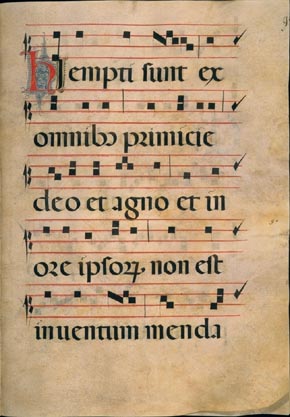 HI empti sunt ex
omnibꝰ primicie
deo et agno et in
ore ipsoꝝ, non est
inuentum menda